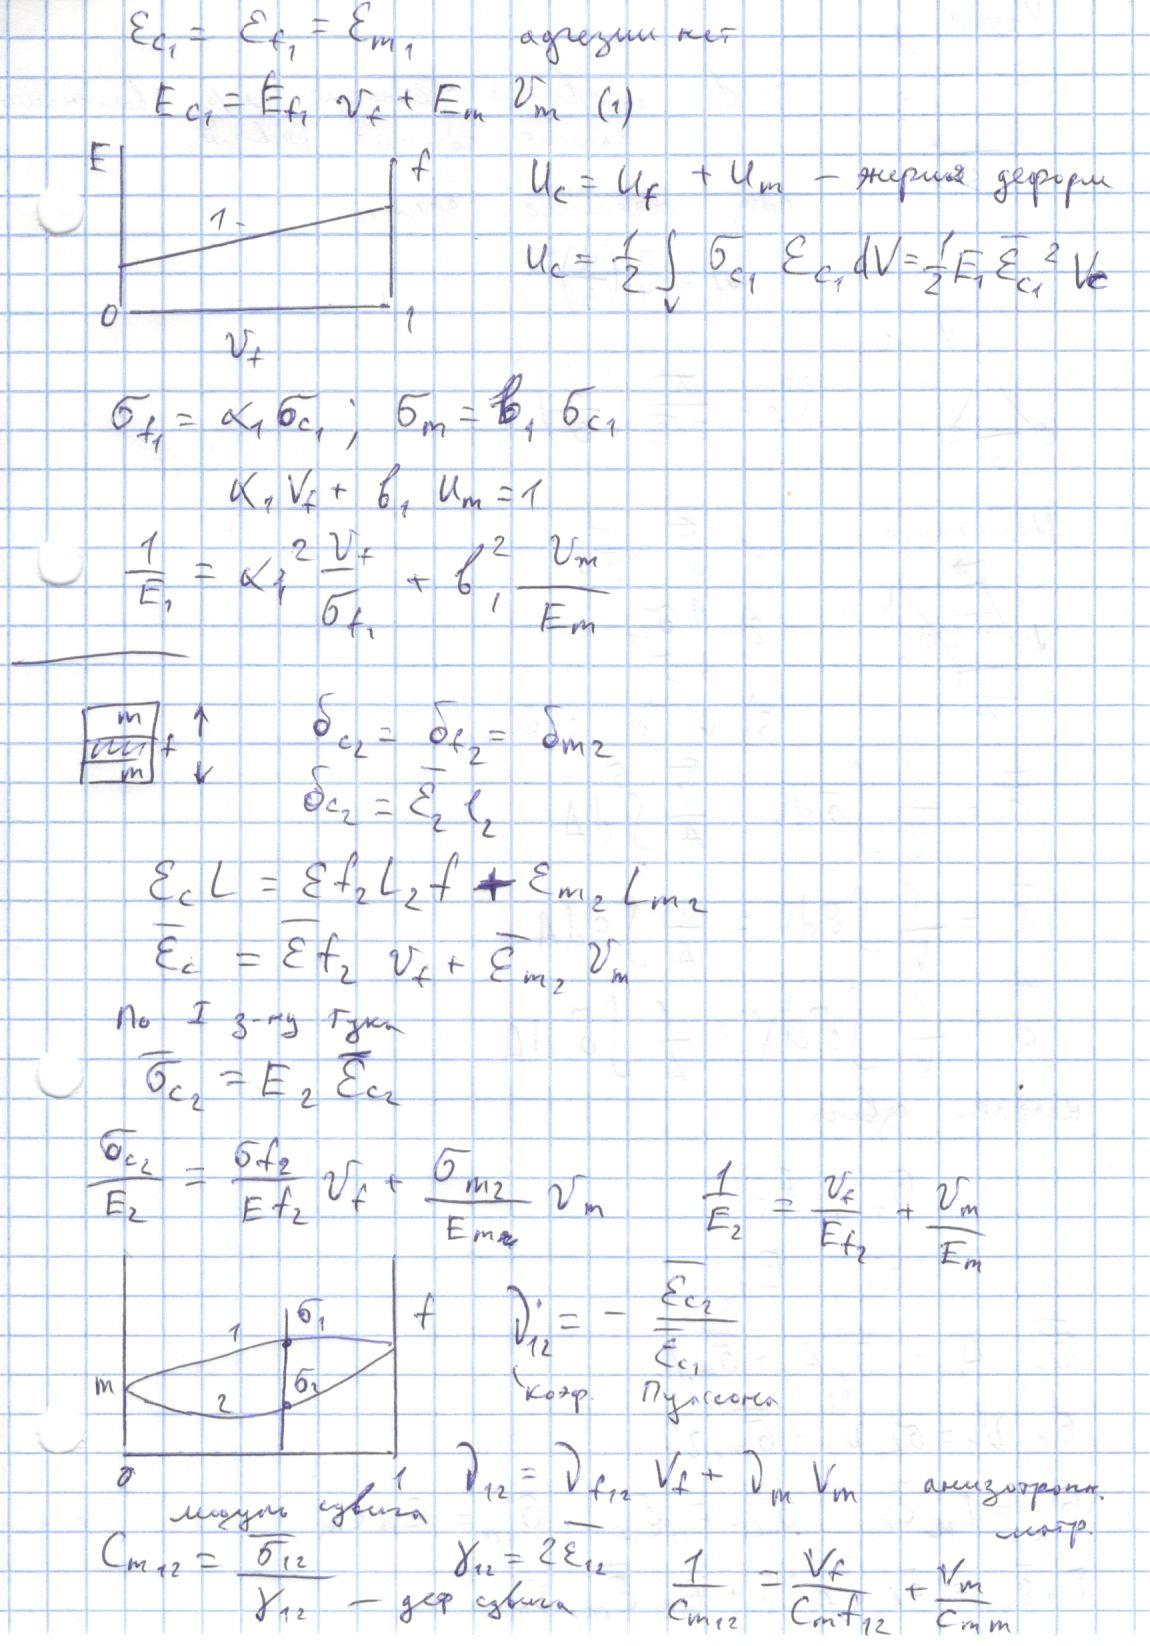 ε_c₁ = ε_f₁ = ε_m₁ адгезии нет
E_c₁ = E_f₁ v_f + E_m v_m (1)
E f
1
0 1
v_f
u_c = u_f + u_m – энергия деформ
u_c = 1/2 ∫_V σ_c₁ ε_c₁ dV = 1/2 E₁ ε̄_c₁² V_c
σ_f₁ = α₁ σ_c₁ ; σ_m = b₁ σ_c₁
α₁ V_f + b₁ u_m = 1
1/E₁ = α₁² v_f/σ_f₁ + b₁² v_m/E_m
m
f
m
δ_c₂ = δ_f₂ = δ_m₂
δ_c₂ = ε̄₂ l₂
ε_c L = ε_f₂ L₂f + ε_m₂ L_m₂
ε̄_c = ε̄_f₂ v_f + ε̄_m₂ v_m
По I з-ну Гука
σ̄_c₂ = E₂ ε̄_c₂
σ_c₂/E₂ = σ_f₂/E_f₂ v_f + σ_m₂/E_m₂ v_m 1/E₂ = v_f/E_f₂ + v_m/E_m
σ₁ f
1
m σ₂
2
0 1
ν₁₂ = – ε̄_c₂/ε̄_c₁
коэф. Пуассона
ν₁₂ = ν_f₁₂ V_f + ν_m V_m анизотропн.
матр.
модуль сдвига
C_m₁₂ = σ̄₁₂/γ₁₂ – деф сдвига γ₁₂ = 2ε̄₁₂ 1/C_m₁₂ = V_f/C_mf₁₂ + V_m/C_mm